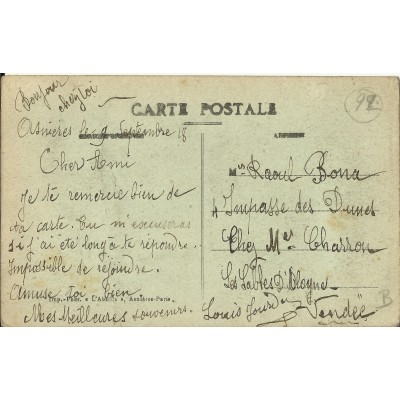 Bonjour
chez toi
CARTE POSTALE
92
Asnières le 9 Septembre 18
Cher Ami
Je te remercie bien de
ta carte. Tu m'excuseras
si j'ai été long à te répondre.
Impossible de rejoindre.
Amuse toi bien
Imp.-Pap. « L'Abeille », Asnières-Paris
Mes Meilleures souvenirs.
ADRESSE
Mr Raoul Bona
4 Impasse des Dunes
Chez Mes Charron
Les Sables D'Ologne
Vendée
Louis
B